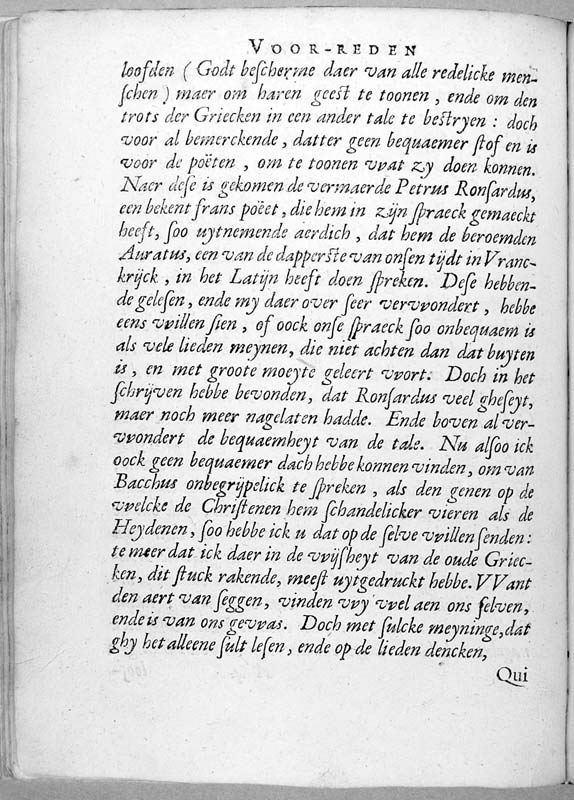 VOOR-REDEN
loofden ( Godt beſcherme daer van alle redelicke men-
ſchen ) maer om haren geeſt te toonen , ende om den
trots der Griecken in een ander tale te beſtryen : doch
voor al bemerckende , datter geen bequaemer ſtof en is
voor de poëten , om te toonen vvat zy doen konnen.
Naer deſe is gekomen de vermaerde Petrus Ronſardus,
een bekent frans poëet , die hem in zijn ſpraeck gemaeckt
heeft, ſoo uytnemende aerdich , dat hem de beroemden
Auratus, een van de dapperſte van onſen tijdt in Vranc-
krijck , in het Latijn heeft doen ſpreken. Deſe hebben-
de geleſen, ende my daer over ſeer vervvondert , hebbe
eens vvillen ſien , of oock onſe ſpraeck ſoo onbequaem is
als vele lieden meynen, die niet achten dan dat buyten
is , en met groote moeyte geleert vvort. Doch in het
ſchrijven hebbe bevonden, dat Ronſardus veel gheſeyt,
maer noch meer nagelaten hadde. Ende boven al ver-
vvondert de bequaemheyt van de tale. Nu alſoo ick
oock geen bequaemer dach hebbe konnen vinden, om van
Bacchus onbegrijpelick te ſpreken , als den genen op de
vvelcke de Chriſtenen hem ſchandelicker vieren als de
Heydenen, ſoo hebbe ick u dat op de ſelve vvillen ſenden:
te meer dat ick daer in de vvijſheyt van de oude Griec-
ken, dit ſtuck rakende, meeſt uytgedruckt hebbe. VVant
den aert van ſeggen, vinden vvy vvel aen ons ſelven,
ende is van ons gevvas. Doch met ſulcke meyninge, dat
ghy het alleene ſult leſen, ende op de lieden dencken,
Qui